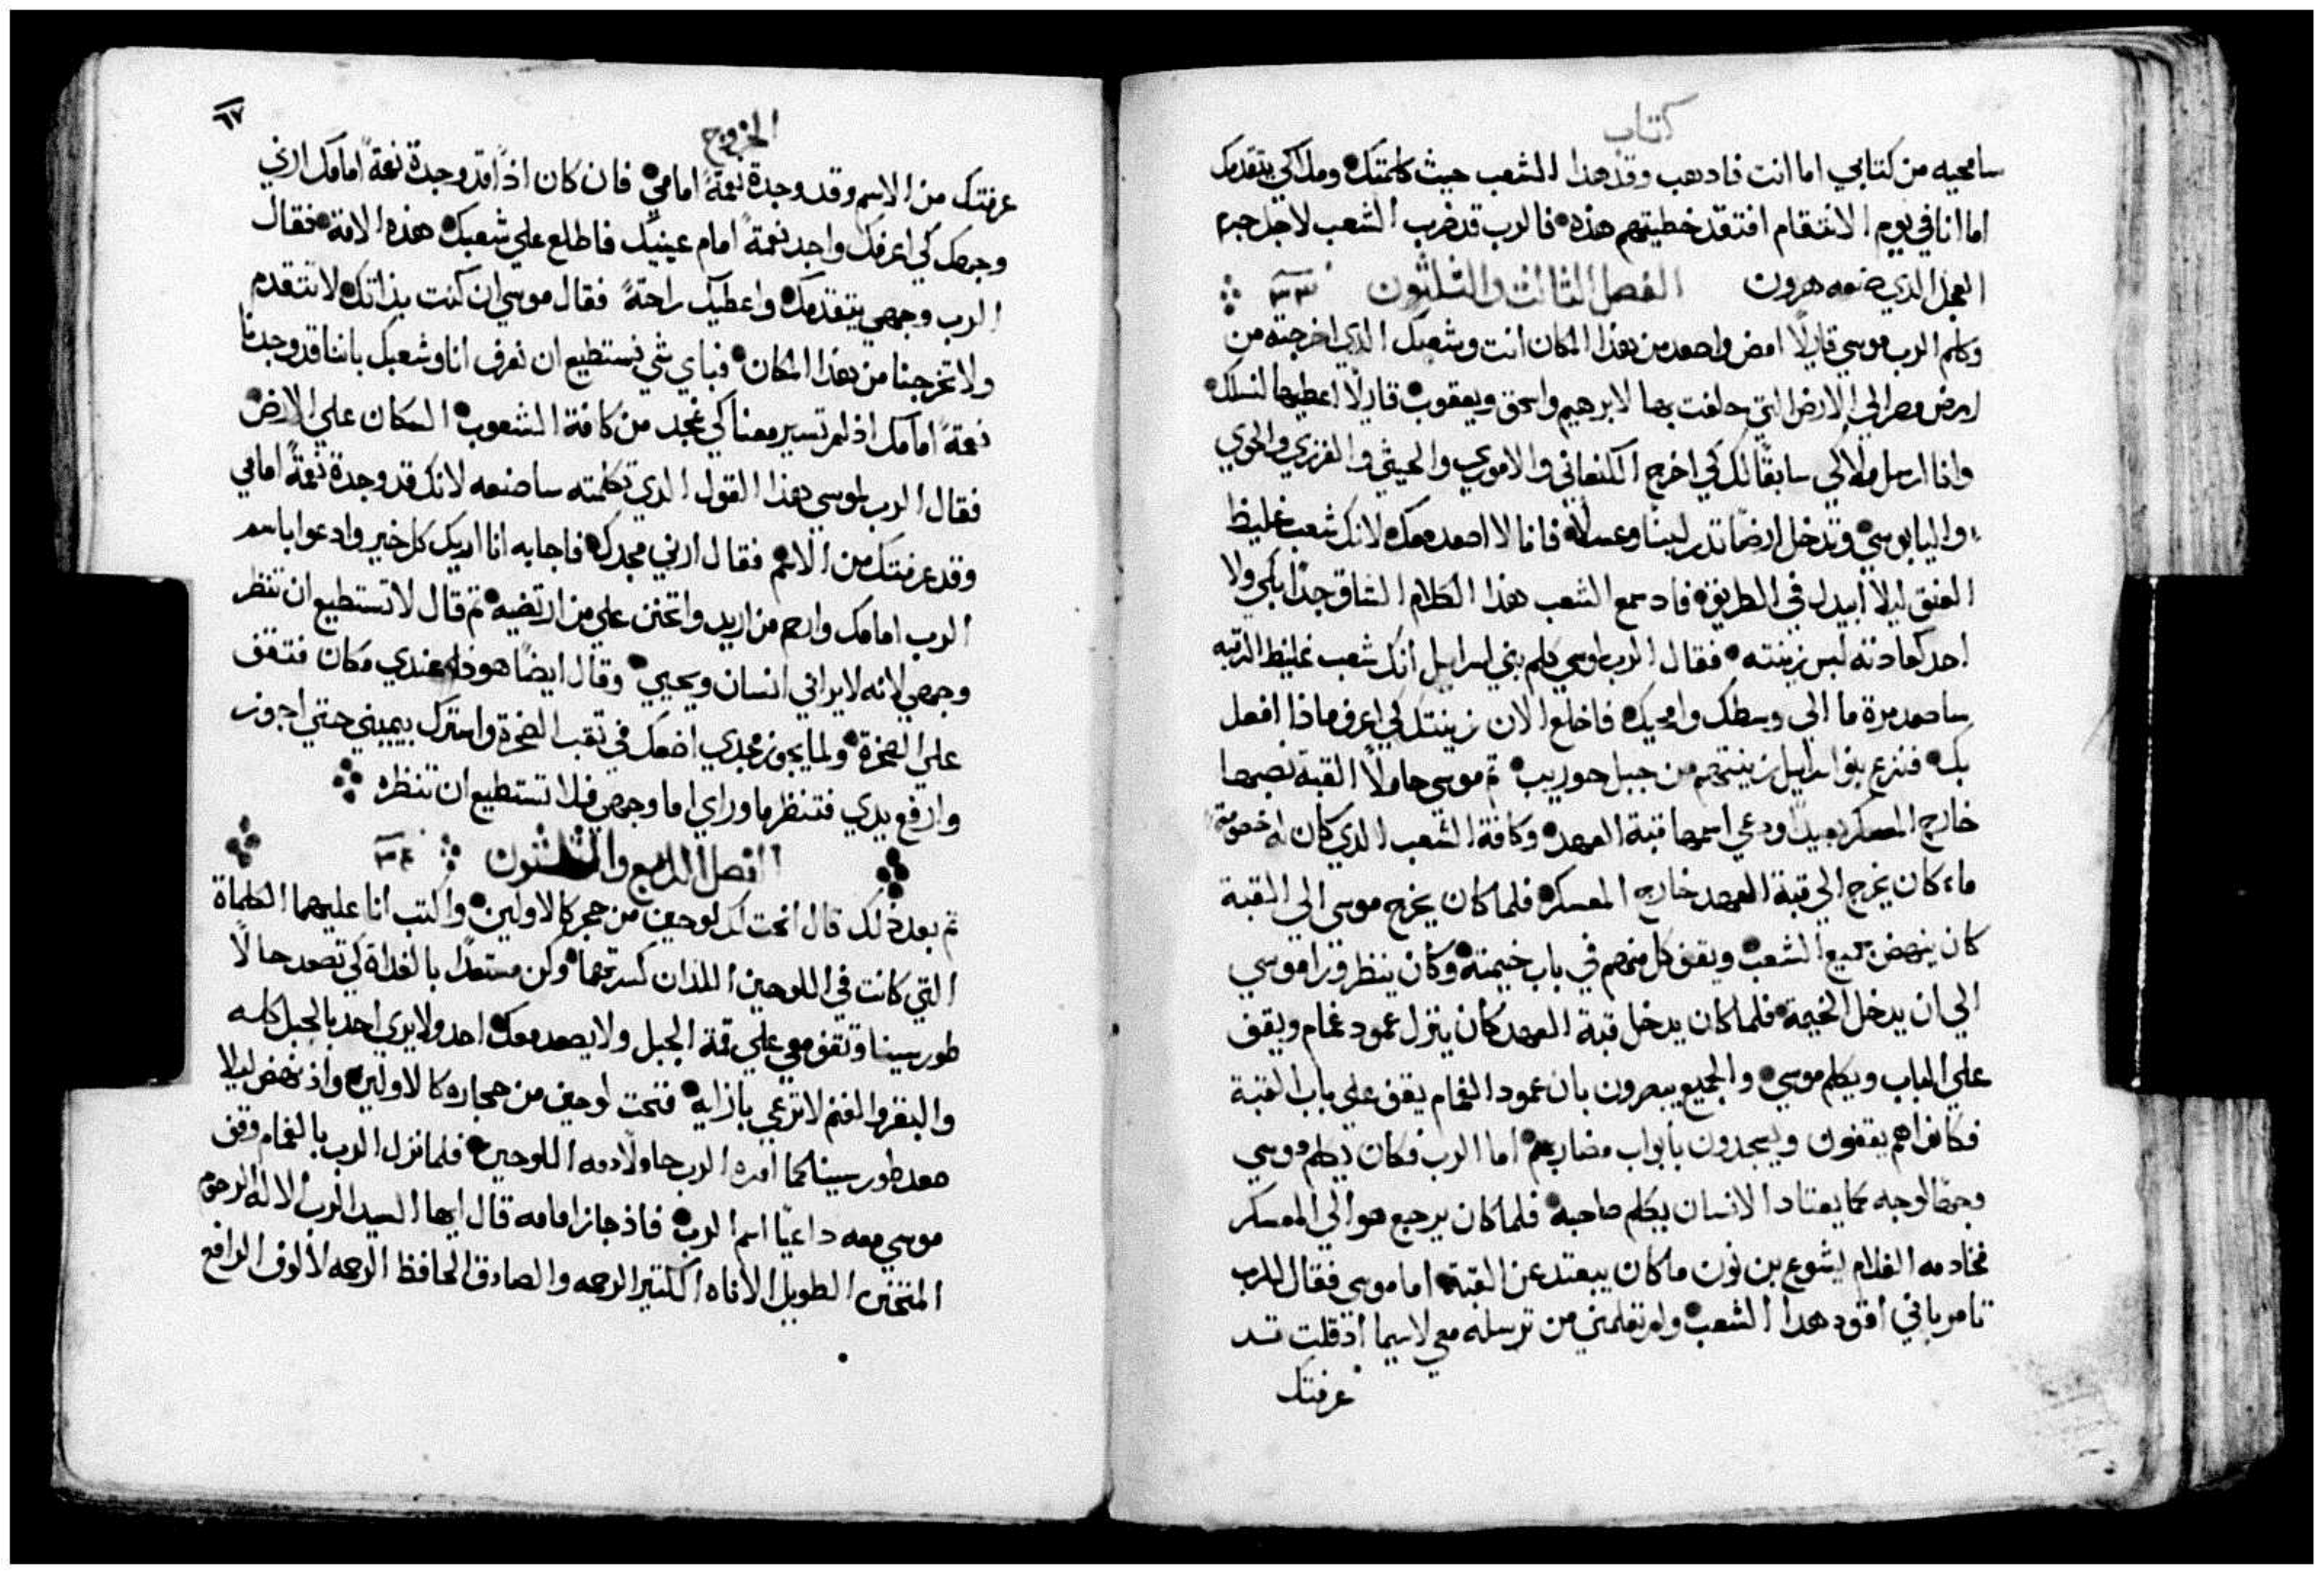 كتاب
سامحيه من كتابي اما انت فادهب وقد هدا الشعب حيث كلمتك وملاكي يتقدمك
اما انا في يوم الانتقام افتقد خطيتهم هذه فالرب قد ضرب الشعب لاجل جرم
العجل الدي صنعه هرون الفصل الثالث والثلثون ٣٣
وكلم الرب موسي قايلًا امض واصعد من هذا المكان انت وشعبك الذي اخرجته من
ارض مصر الي الارض التي حلفت بها لابرهيم واسحق ويعقوب قايلًا اعطيها لنسلك
وانا ارسل ملاكي سابقًا لك كي اخرج الكنعاني والاموري والحيثي والفرزي والحوي
واليابوسي وتدخل ارضًا تدر لبنًا وعسلًا فانا لا اصعد معك لانك شعب غليظ
العنق ليلا ابيدك في الطريق فاد سمع الشعب هذا الكلام الشاق جدًا بكي ولا
احد كعادته لبس زينته فقال الرب لموسي كلم بني اسراييل انك شعب غليظ الرقبه
ساصعد مرة ما الي وسطك وامحيك فاخلع الان زينتك كي اعرف ماذا افعل
بك فنزع بنوا اسراييل زينتهم من جبل حوريب ثم موسي حاملًا القبة نصبها
خارج المعسكر بعيدًا ودعي اسمها قبة العهد وكافة الشعب الدي كان له خصومة
ماء كان يخرج الي قبة العهد خارج المعسكر فلما كان يخرج موسي الي القبة
كان ينهض جميع الشعب ويقف كل منهم في باب خيمته وكان ينظر ورا موسي
الي ان يدخل الخيمة فلما كان يدخل قبة العهد كان ينزل عمود غمام ويقف
علي الباب ويكلم موسي والجميع يبصرون بان عمود الغمام يقف علي باب القبة
فكانوا هم يقفون ويسجدون بابواب مضاربهم اما الرب فكان يكلم موسي
وجهًا لوجه كما يعتاد الانسان يكلم صاحبه فلما كان يرجع هو الي المعسكر
فخادمه الغلام يشوع بن نون ما كان يبتعد عن القبة اما موسي فقال للرب
تامر باني اقود هدا الشعب ولم تعلمني من ترسله معي لاسيما اذ قلت قد
عرفتك
الخروج
٦٧
عرفتك من الاسم وقد وجدة نعمةً امامي فان كان اذًا قد وجدة نعمةً امامك ارني
وجهك كي اعرفك واجد نعمةً امام عينيك فاطلع علي شعبك هذه الامة فقال
الرب وجهي يتقدمك واعطيك راحةً فقال موسي ان كنت بذاتك لا تتقدم
ولا تخرجنا من هذا المكان فباي شي نستطيع ان نعرف انا وشعبك باننا قد وجدنا
نعمةً امامك اذ لم تسير معنا كي نمجد من كافة الشعوب السكان علي الارض
فقال الرب لموسي هذا القول الدي تكلمته ساصنعه لانك قد وجدة نعمةً امامي
وقد عرفتك من الاسم فقال ارني مجدك فاجابه انا اريك كل خير وادعوا باسم
الرب امامك وارحم من اريد واتحنن علي من ارتضيه ثم قال لا تستطيع ان تنظر
وجهي لانه لا يراني انسان ويحيي وقال ايضًا هوذا عندي مكان فتقف
علي الصخرة ولما يجوز مجدي اضعك في ثقب الصخرة واسترك بيميني حتي اجوز
وارفع يدي فتنظر ما وراي اما وجهي فلا تستطيع ان تنظره
الفصل الرابع والثلثون ٣٤
ثم بعد ذلك قال انحت لك لوحين من حجر كالاولين واكتب انا عليهما الكلماة
التي كانت في اللوحين اللذان كسرتهما وكن مستعدًا بالغداة كي تصعد حالًا
طور سينا وتقف معي علي قمة الجبل ولا يصعد معك احد ولا يري احد بالجبل كله
والبقر والغنم لا ترعي بازايه فنحت لوحين من حجاره كالاولين واذ نهض ليلا
صعد طور سينا كما امره الرب حاملًا معه اللوحين فلما نزل الرب بالغمام وقف
موسي معه داعيًا اسم الرب فاذ جاز امامه قال ايها السيد الرب الاله الرحوم
المتحنن الطويل الاناه الكتير الرحمه والصادق الحافظ الرحمه لالوف الرافع